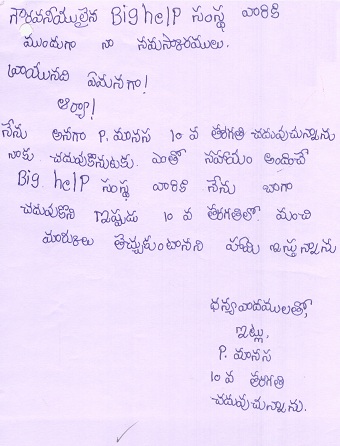 గౌరవనీయులైన Big help సంస్థ వారికి
ముందుగా నా నమస్కారములు.
వ్రాయునది ఏమనగా!
ఆర్యా!
నేను అనగా P. మానస 10 వ తరగతి చదువుచున్నాను
నాకు చదువుకొనుటకు. ఎంతో సహాయం అందించే
Big help సంస్థ వారికి నేను బాగా
చదువుకొని ఇప్పుడు 10 వ తరగతిలో. మంచి
మార్కులు తెచ్చుకుంటానని హామి ఇస్తున్నాను
ధన్యవాదములతో,
ఇట్లు,
P. మానస
10 వ తరగతి
చదువుచున్నాను.